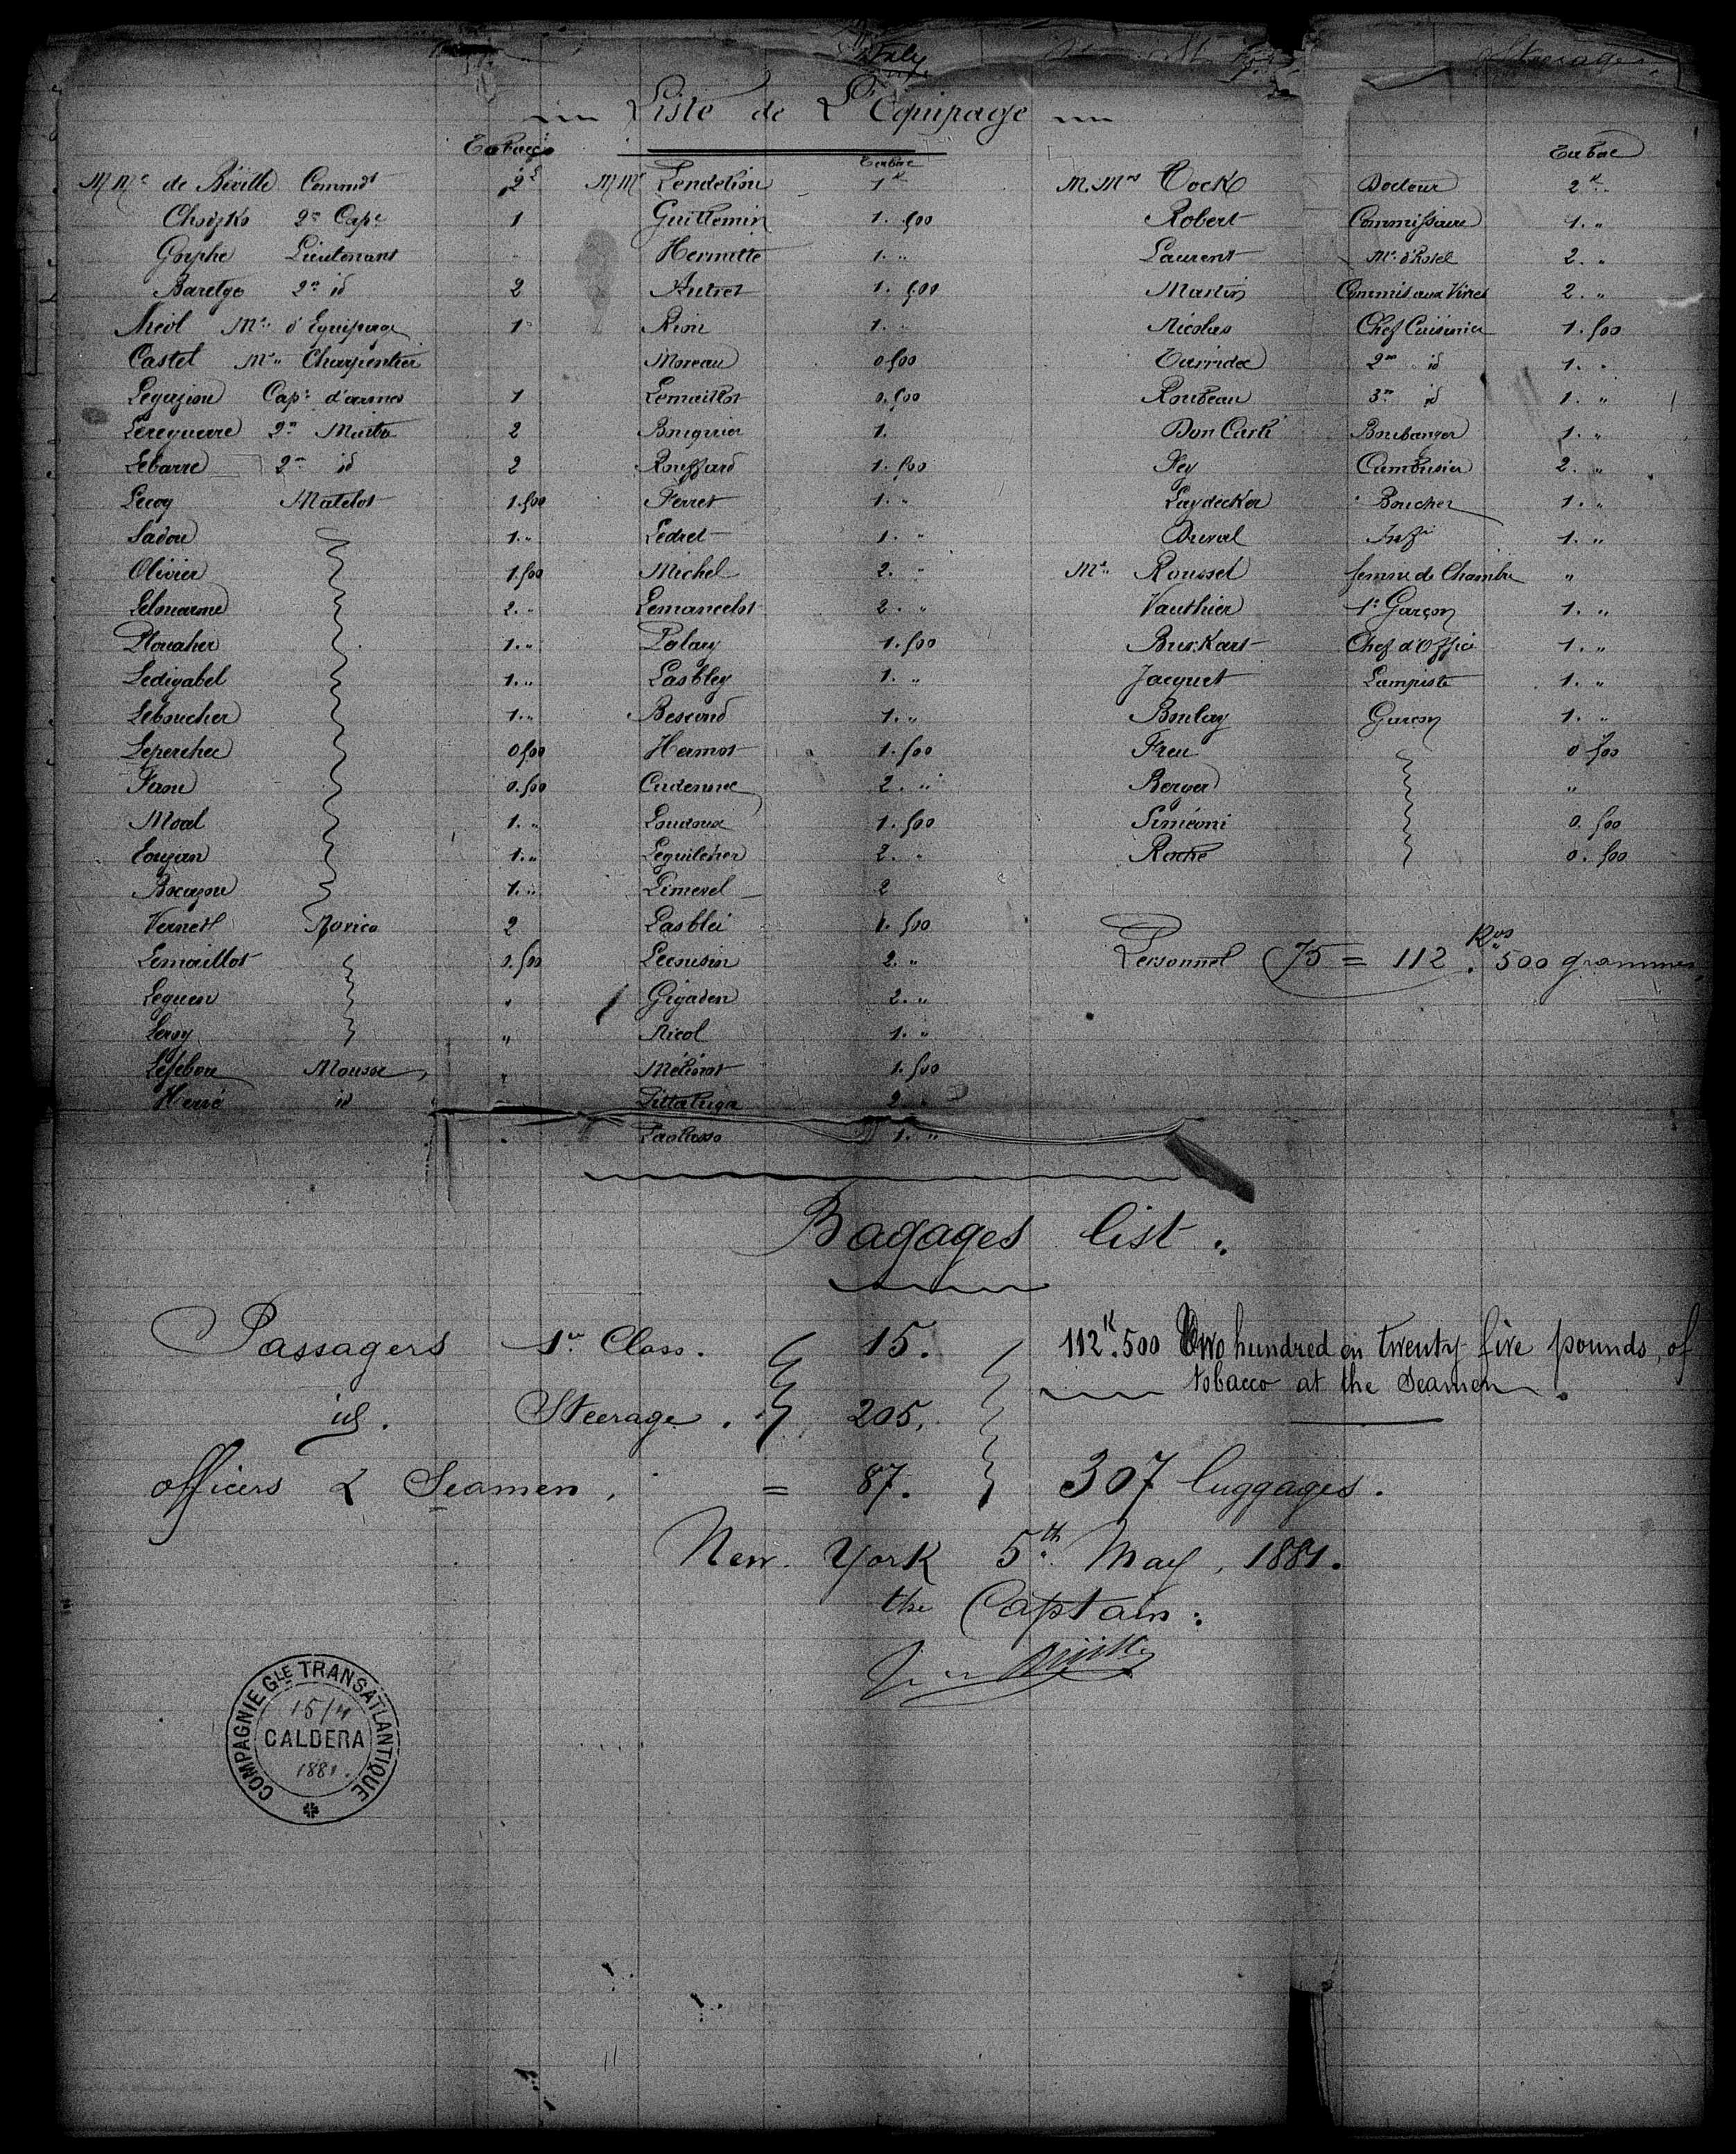 Italy
Steerage
Liste de L'Equipage
Tabac Tabac Tabac
M.Mrs de Béville Commdt 2k M.Mrs Lendelion 1k M.Mrs Cock Docteur 2k
Choizko 2e Cape 1 Guillemin 1.500 Robert Commissaire 1. "
Gorphe Lieutenant " Hermitte 1. " Laurent Me d'hotel 2. "
Baretge 2e id 2 Autret 1.500 Martin Commis aux Vivres 2. "
Nicol Me d'Equipage 1 Rion 1. " Nicolas Chef Cuisinier 1.500
Castel Me Charpentier Moreau 0.500 2me id 1. "
Leguziou Cape d'armes 1 Lemaillot 0.500 Roubeau 3me id 1. "
Lereguerre 2e Maitre 2 Bouguier 1. Don Carli Boulanger 1. "
Lebarre 2e id 2 Rouffard 1.500 Fey Cambusier 2. "
Lecoq Matelot 1.500 Ferret 1. " Laydecker Boucher 1. "
Sadou 1. " Ledret 1. " Duval Infr 1. "
Olivier 1.500 Michel 2. " Me Roussel femme de Chambre "
Lelouarne 2. " Lemancelot 2. " Vauthier 1r Garçon 1. "
Plouaher 1. " Palary 1.500 Burkart Chef d'Office 1. "
Ledigabel 1. " Lasbley 1. " Jacquet Lampiste 1. "
Leboucher 1. " Bescond 1. " Boulay Garçon 1. "
Leperchec 0.500 Hermot 1.500 Freu 0.500
Fanu 0.500 Cudennec 2. " Berger "
Moal 1. " Loudoux 1.500 Siméoni 0.500
Touzan 1. " Leguilcher 2. " Roche 0.500
Bocazou 1. " Limerel 2
Verneil Novice 2 Lasblei 1.500
Lemaillot 0.500 Lecousin 2. " Personnel 75 = 112 Kos. 500 grammes
Leguen " Gigaden 2. "
Leroy " Nicol 1. "
Lefebvre Mousse " Mélinot 1.500
Hervé id Littaluga 2. "
" Paolasso 1. "
Bagages list.
Passagers 1re Class. 15. 112k.500 Two hundred en twenty five pounds, of
tobacco at the Seamen.
id. Steerage. 205.
officers & Seamen, = 87. 307 luggages.
New-York 5th May, 1881.
the Captain:
COMPAGNIE GLE TRANSATLANTIQUE
15/4
CALDERA
1881.